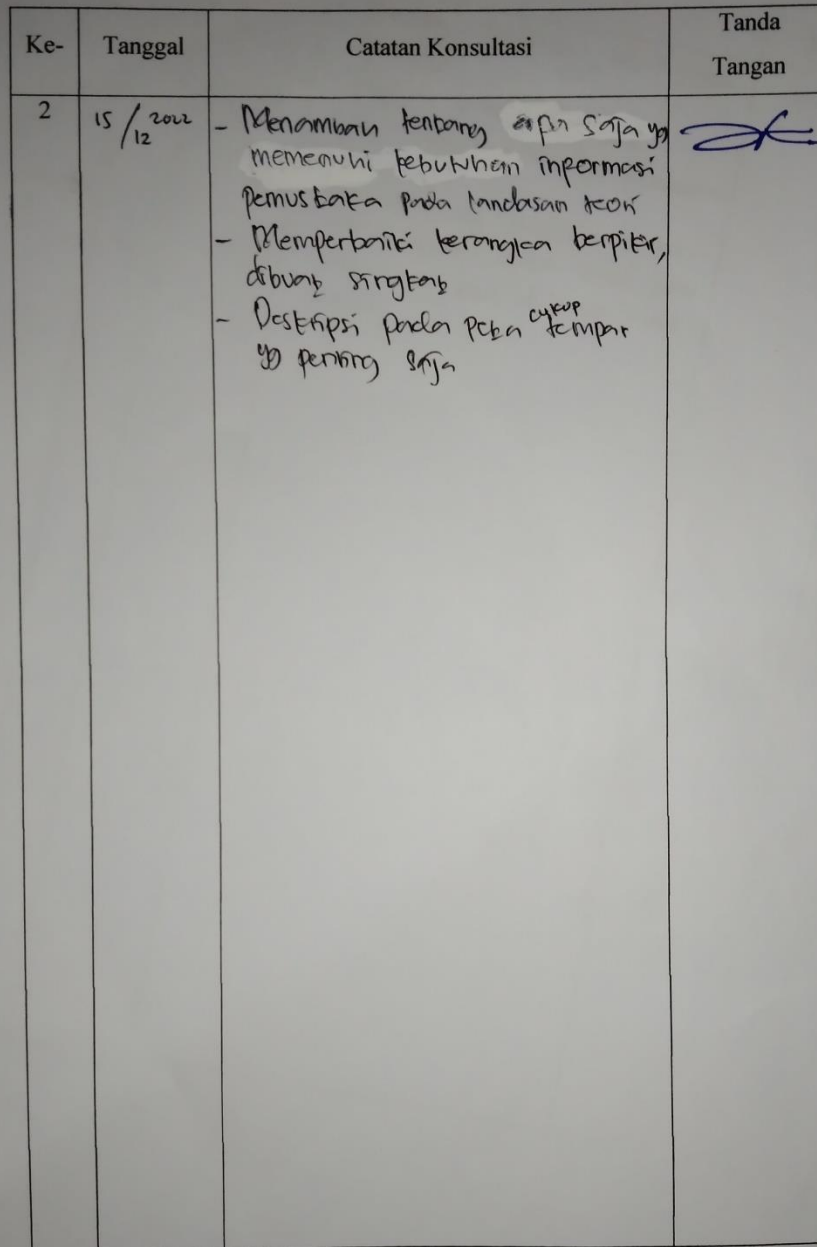 Ke- Tanggal Catatan Konsultasi Tanda Tangan
2 15/12 2022 - Menambah tentang apa saja yg
memenuhi kebutuhan informasi
pemustaka pada landasan teori
- Memperbaiki kerangka berpikir,
dibuat singkat
- Deskripsi pada peta cukup tempat
yg penting saja